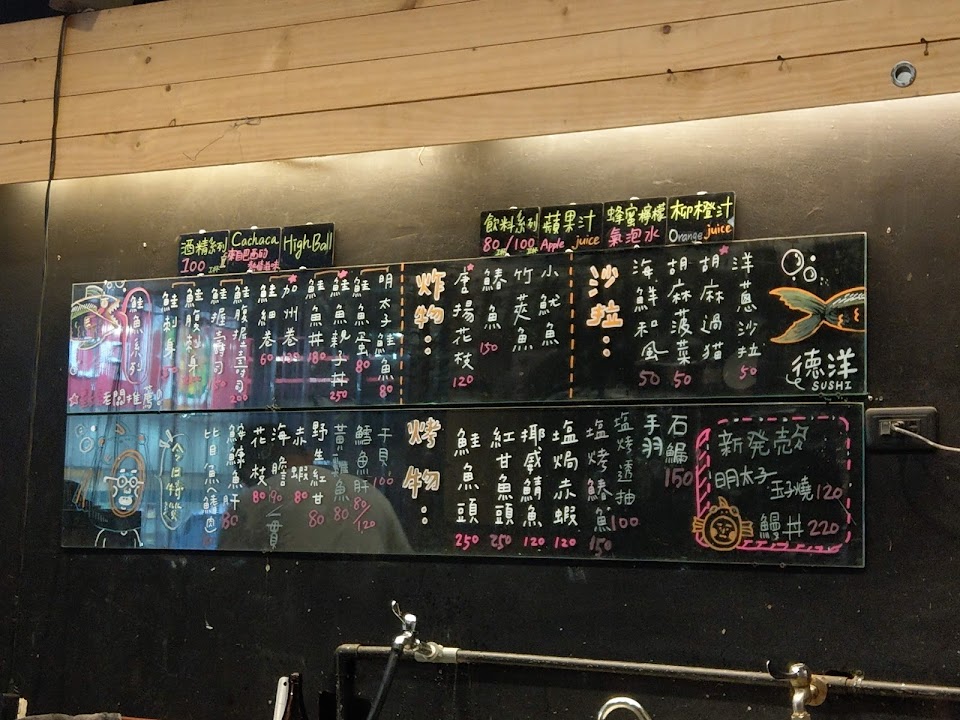 酒精系列
100
Cachaca
來自巴西的
High Ball
飲料系列
80/100
蘋果汁
Apple juice
蜂蜜檸檬
氣泡水
柳橙汁
Orange juice
鮭魚系列
老闆推薦
鮭刺身 150
鮭腹刺身
鮭握壽司
鮭腹握壽司 200
鮭細卷 60
加州卷 120
鮭魚丼 180
鮭魚親子丼 250
鮭魚蛋 80
明太子鮭魚 80
炸物:
唐揚花枝 120
鱚魚 150
竹莢魚
小魷魚
沙拉:
海鮮和風 50
胡麻菠菜 50
胡麻過貓
洋蔥沙拉 50
德洋
SUSHI
今日特選
比目魚(鰭邊)
鮟鱇魚肝 80
花枝 80
海膽 190/一貫
赤蝦 80
野生紅甘 80
黃雞魚 80
鱈魚肝 80/120
干貝 100
烤物:
鮭魚頭 250
紅甘魚頭 250
挪威鯖魚 120
塩焗赤蝦 120
塩烤鱚魚 150
塩烤透抽 100
手羽
石鯛 150
新発売
明太子玉子燒 120
鰻丼 220